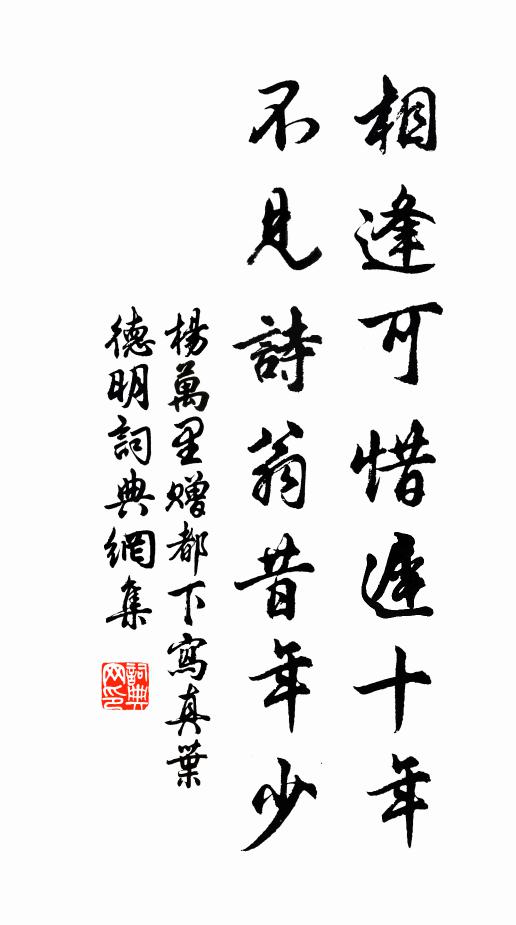 相逢可惜遲十年
不見詩翁昔年少
楊萬里贈都下寫真葉
德明詞典網集
詞典
网印